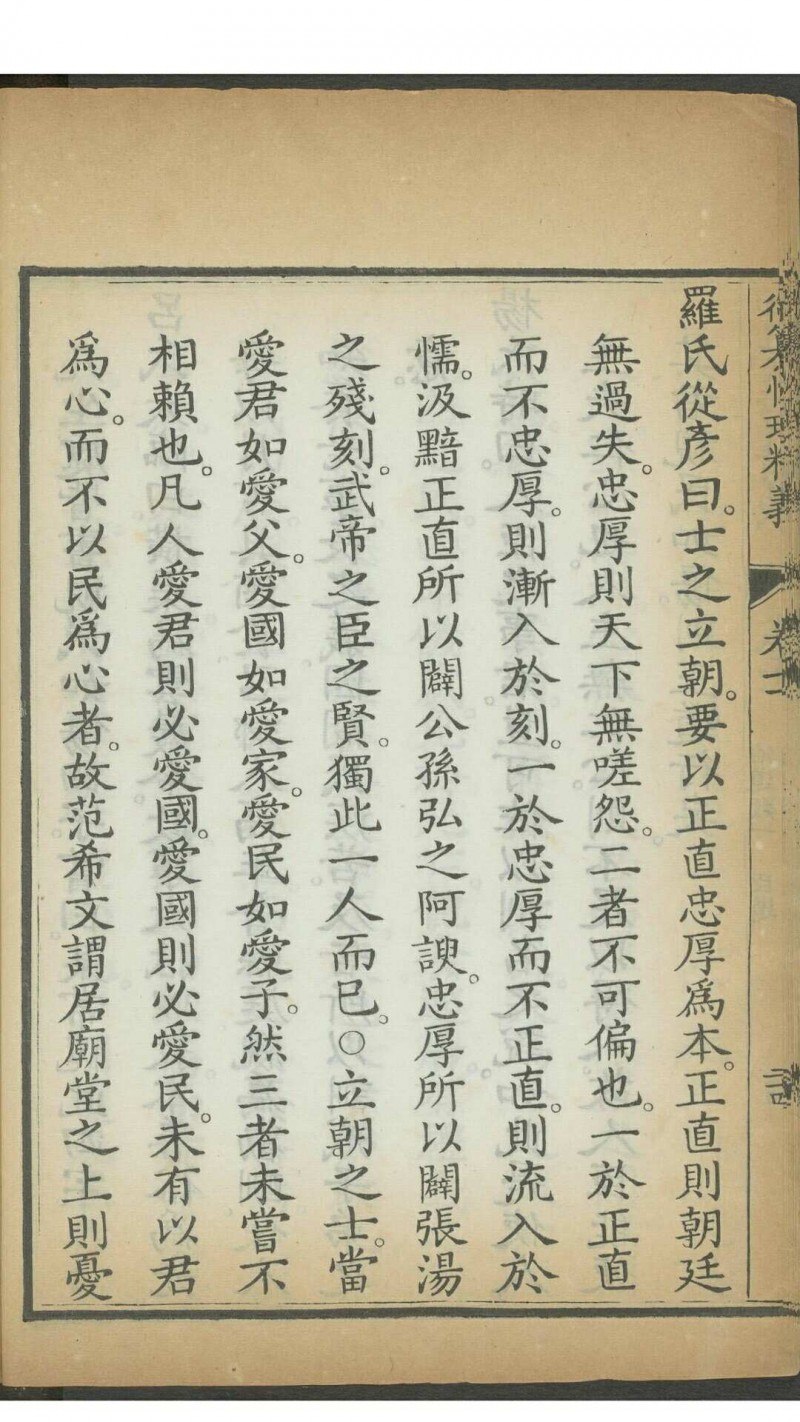 羅氏從彥曰。士之立朝。要以正直忠厚爲本。正直則朝廷
無過失。忠厚則天下無嗟怨。二者不可偏也。一於正直
而不忠厚。則漸入於刻。一於忠厚而不正直。則流入於
懦。汲黯正直所以闢公孫弘之阿諛。忠厚所以闢張湯
之殘刻。武帝之臣之賢。獨此一人而已。○立朝之士。當
愛君如愛父。愛國如愛家。愛民如愛子。然三者未嘗不
相賴也。凡人愛君則必愛國。愛國則必愛民。未有以君
爲心。而不以民爲心者。故范希文謂居廟堂之上則憂